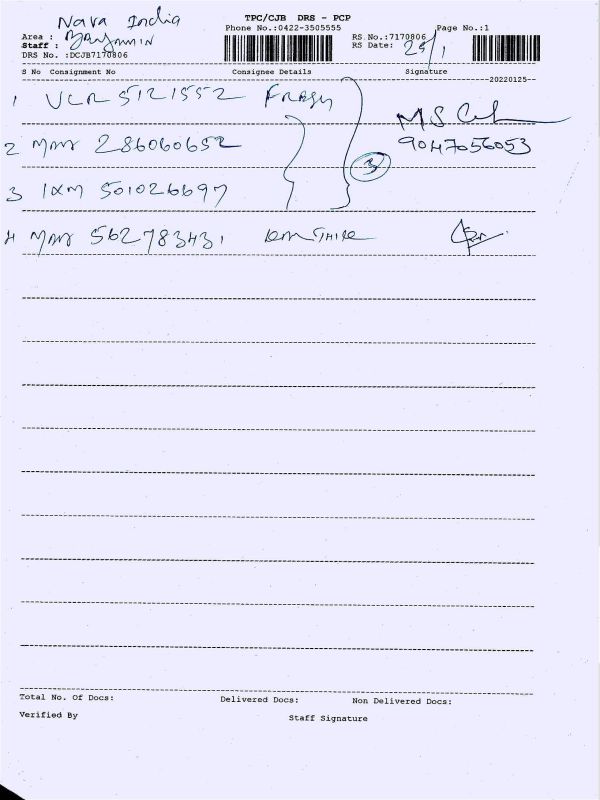 Nava India
TPC/CJB DRS - PCP
Phone No.:0422-3505555
Page No.:1
Area :
Staff : Benjamin
RS No.:7170806
RS Date: 25/1
DRS No. :DCJB7170806
S No Consignment No Consignee Details Signature
20220125
1 VLR 5121552
MS
2 MAA 286060652
9047056053
3
3 IXM 501026697
4 MAA 562783431
Total No. Of Docs: Delivered Docs: Non Delivered Docs:
Verified By Staff Signature